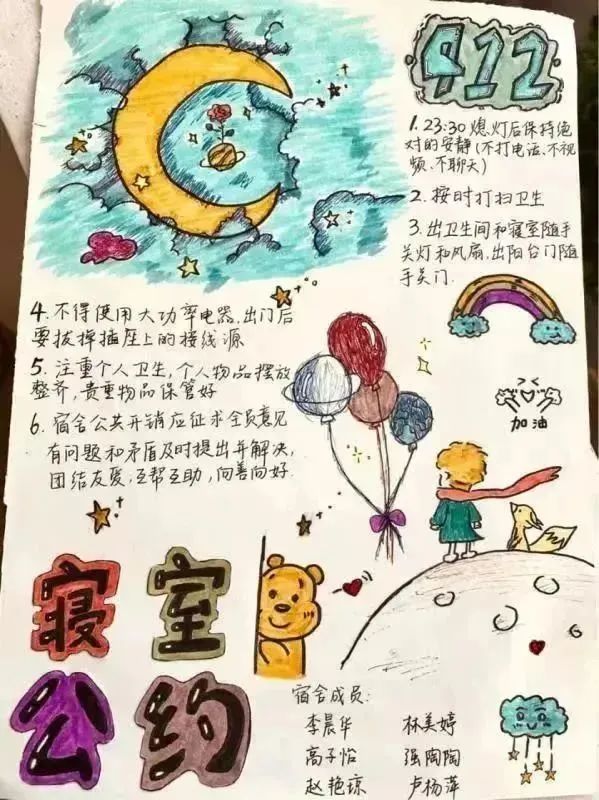 912
1. 23:30 熄灯后保持绝
对的安静(不打电话、不视
频、不聊天)
2. 按时打扫卫生
3. 出卫生间和寝室随手
关灯和风扇,出阳台门随
手关门.
4. 不得使用大功率电器、出门后
要拔掉插座上的接线源
5. 注重个人卫生,个人物品摆放
整齐,贵重物品保管好
6. 宿舍公共开销应征求全员意见
有问题和矛盾及时提出并解决,
团结友爱,互帮互助,向善向好.
加油
寝室
公约
宿舍成员:
李晨华 林美婷
高子怡 强陶陶
赵艳琼 卢杨萍